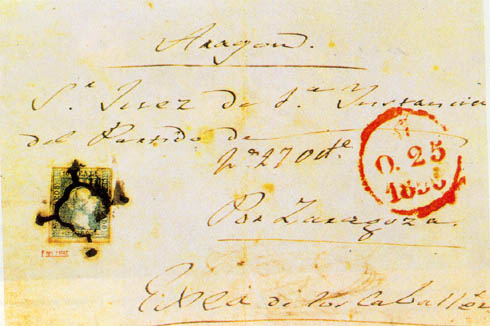 Aragon.
Sr. Juez de 1ª Instancia
del Partido de
O. 25
Por Zaragoza.
Exea de los Caballeros